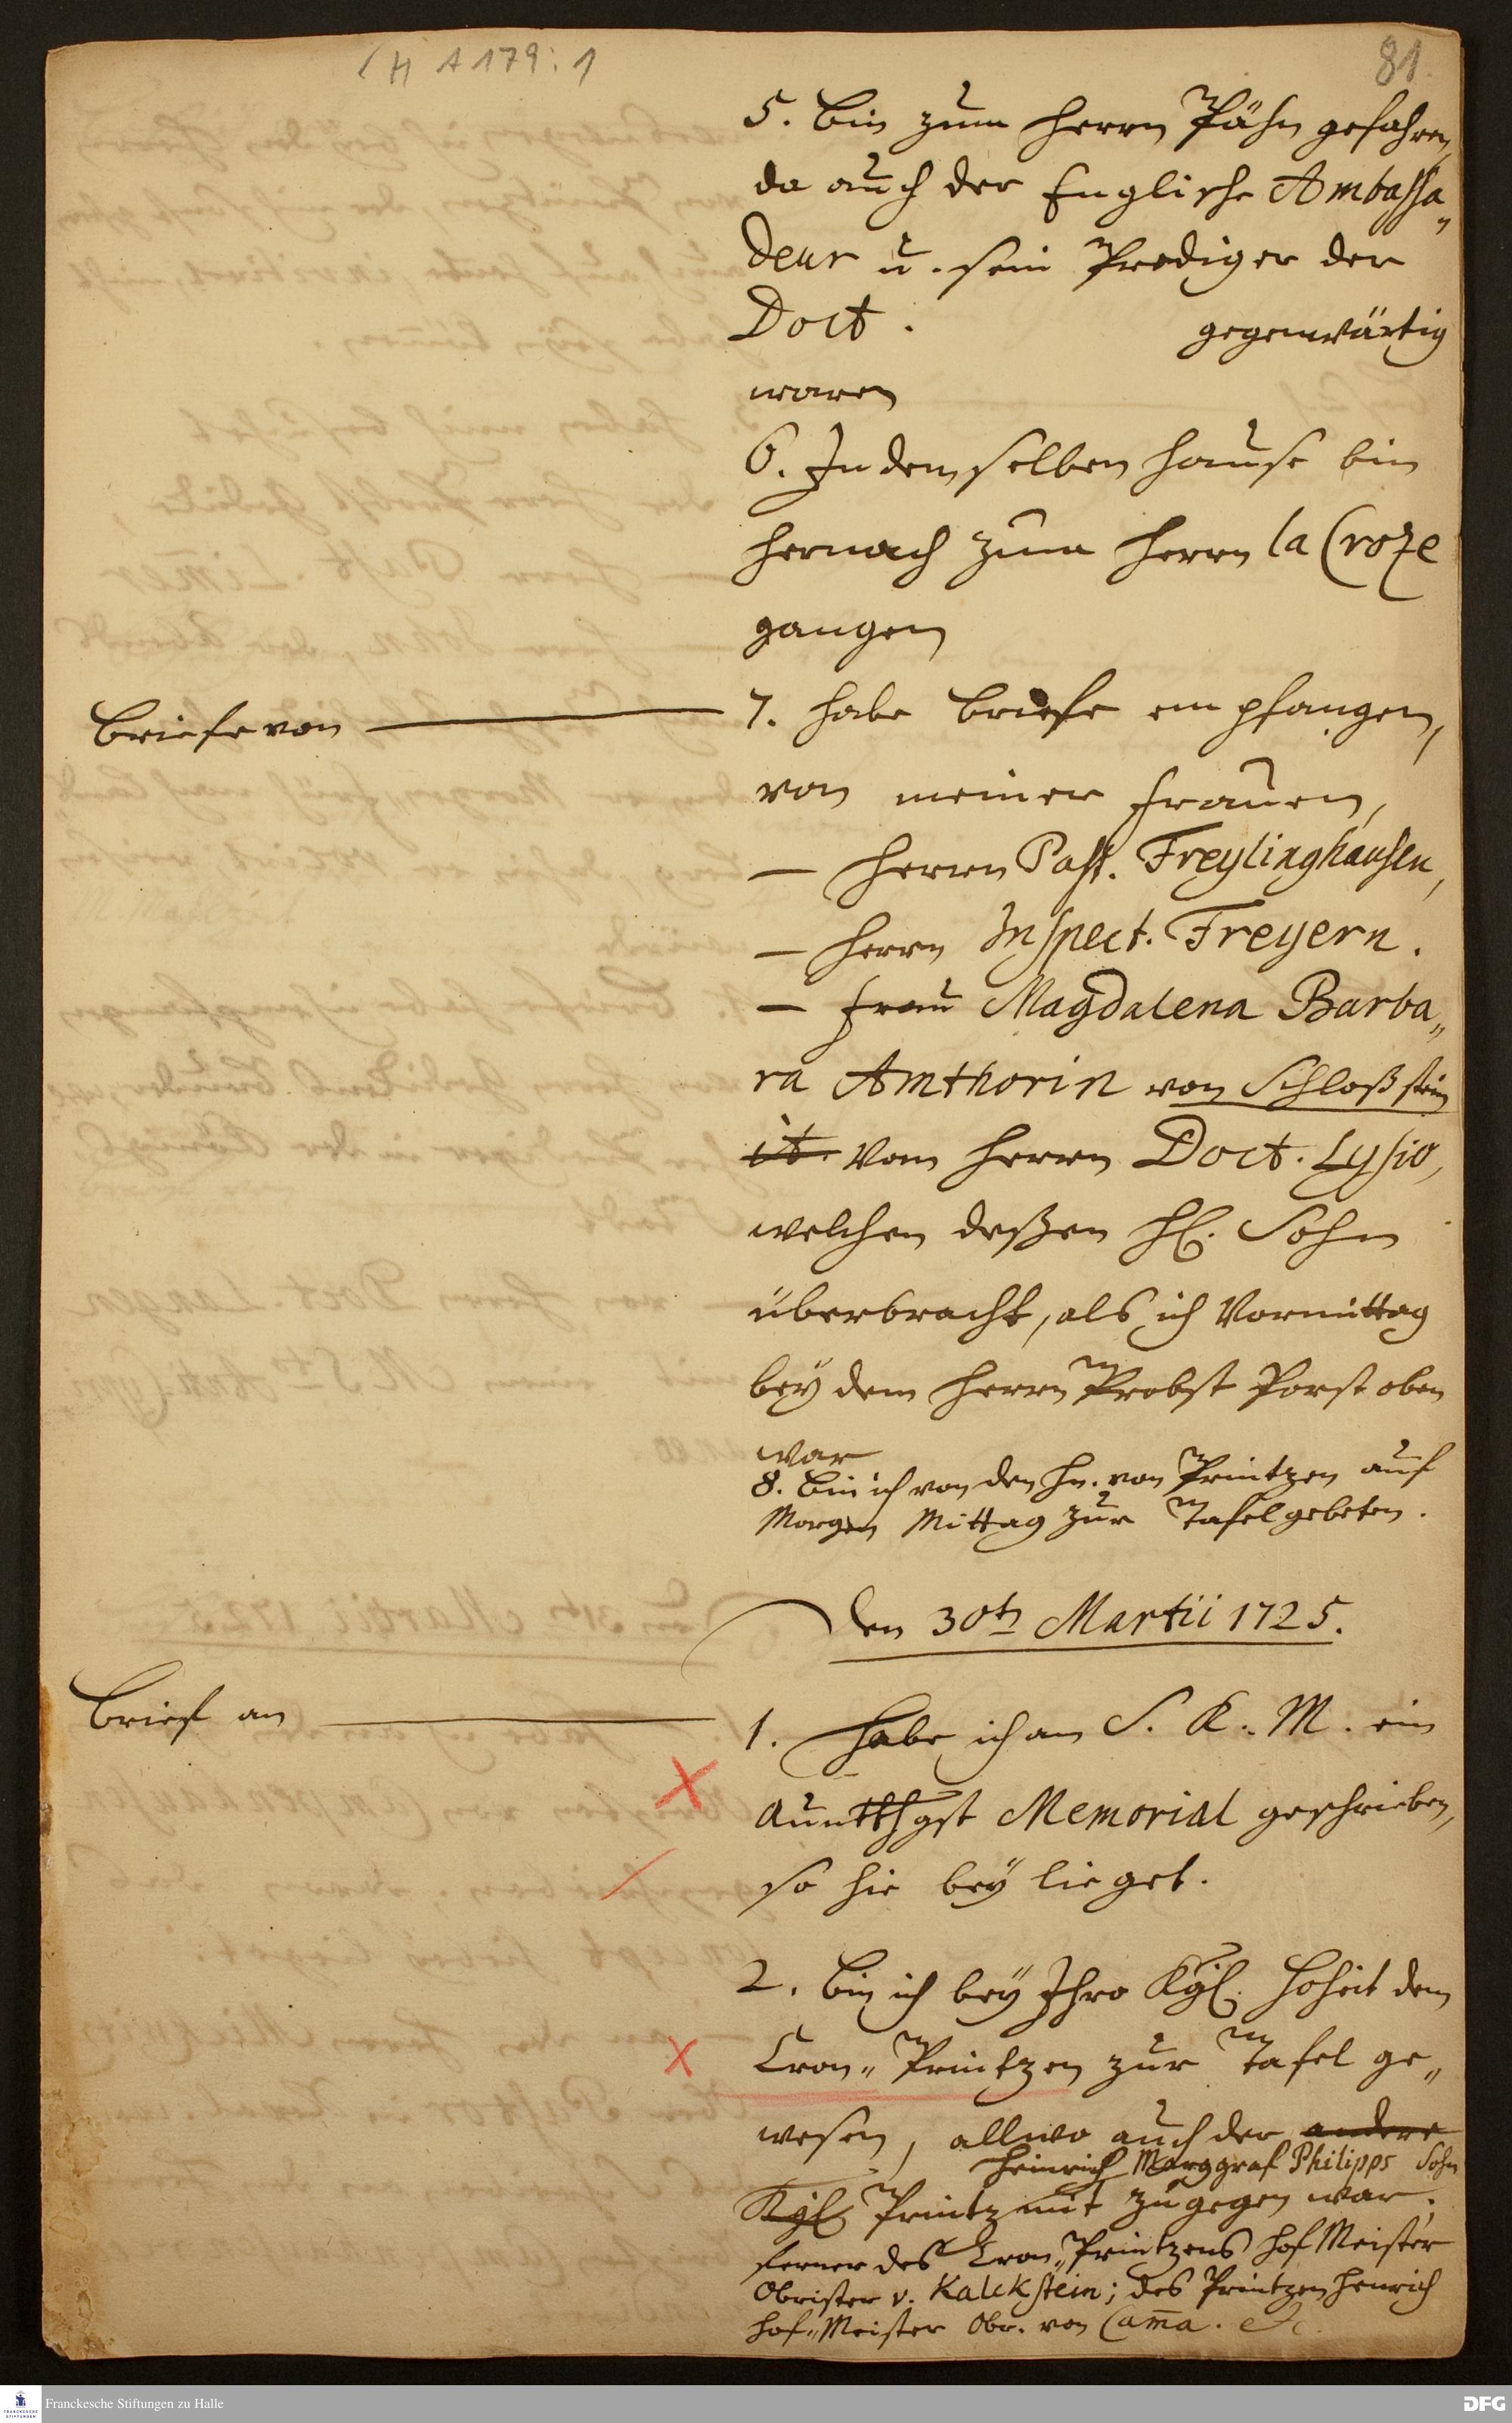 H A 179:1
81.
5. bin zum Herrn Pähn gefahren,
da auch der Englische Ambassa„
deur u. sein Prediger der
Doct. gegenwärtig
waren
6. In demselben Hause bin
hernach zum Herrn la Croze
gangen
Briefe von — 7. habe briefe empfangen,
von meiner Frauen,
— Herrn Past. Freylinghausen,
— Herrn Inspect. Freyern.
— Frau Magdalena Barba„
ra Amthorin von Schloß stein
it. Vom Herrn Doct. Lysio,
welchen deßen H. Sohn
überbracht, als ich Vormittag
bey dem Herrn Probst Porst oben
war
8. Bin ich von den Hn. von Printzen auf
Morgen Mittag zur Tafel gebeten.
Den 30ten Martii 1725.
Brief an — 1. Habe ich an S. K. M. ein
Memorial geschrieben,
so hie bey lieget.
2. Bin ich bey Ihro Kgl. Hoheit dem
Cron„Printzen zur Tafel ge„
wesen, allwo auch der andere
Heinrich Marggraf Philipps Sohn
Kgl Printz mit zugegen war.
ferner des Cron„Printzens Hof Meister
Obrister v. Kalckstein; des Printzen Henrich
Hof„Meister Obr. von Cam̅a. etc.
Franckesche Stiftungen zu Halle
FRANCKESCHE STIFTUNGEN
DFG